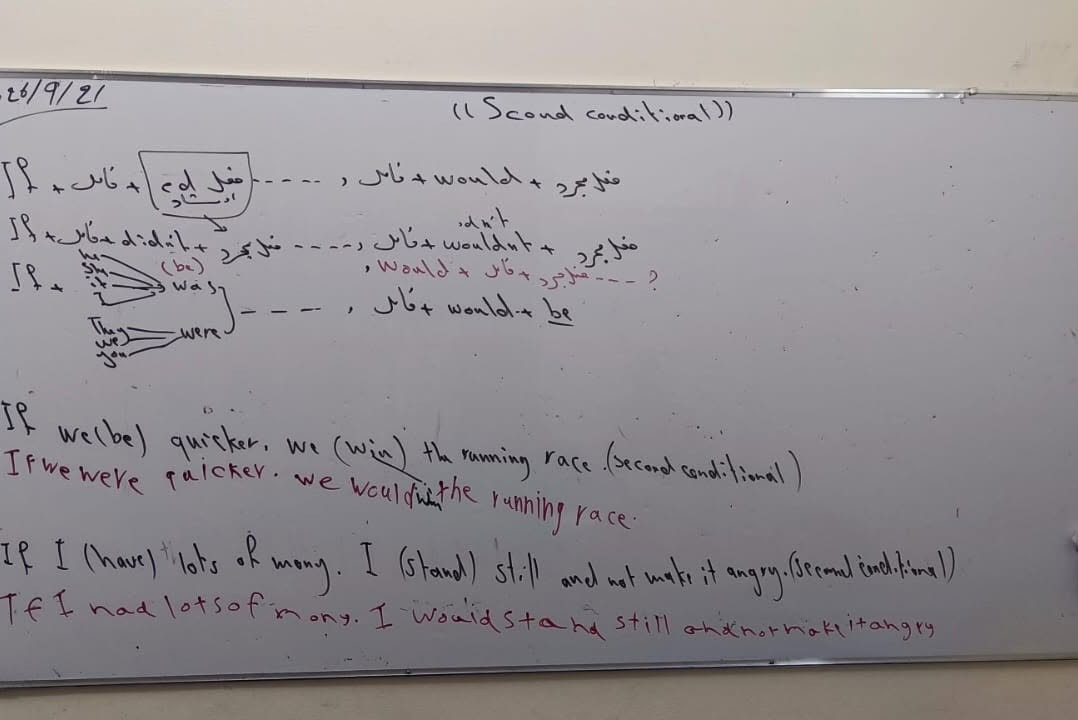 26/9/21
((Scond conditional))
If + فاعل + فعل ed ----- , فاعل + would + فعل مجرد
او شاذ
dn't
If + فاعل + didn't + فعل مجرد ----, فاعل + wouldnt + فعل مجرد
(be) , would + فاعل + فعل مجرد --- ?
If + he she it I was ---- , فاعل + would + be
They we you were
If we (be) quicker, we (win) the running race. (second conditional)
If we were quicker. we would win the running race.
If I (have) lots of mony. I (stand) still and not make it angry. (second conditional)
If I had lots of mony. I would stand still and not make it angry